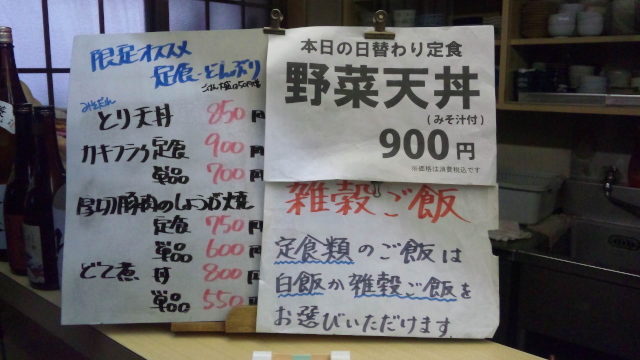 限定オススメ
定食・どんぶり
みそだれ
とり天丼 850円
カキフライ定食 900円
単品 700円
厚切豚肉のしょうが焼
定食 750円
単品 600円
どて煮 丼 800円
単品 550円
本日の日替わり定食
野菜天丼
(みそ汁付)
900円
※価格は消費税込です
雑穀ご飯
定食類のご飯は
白飯か雑穀ご飯を
お選びいただけます